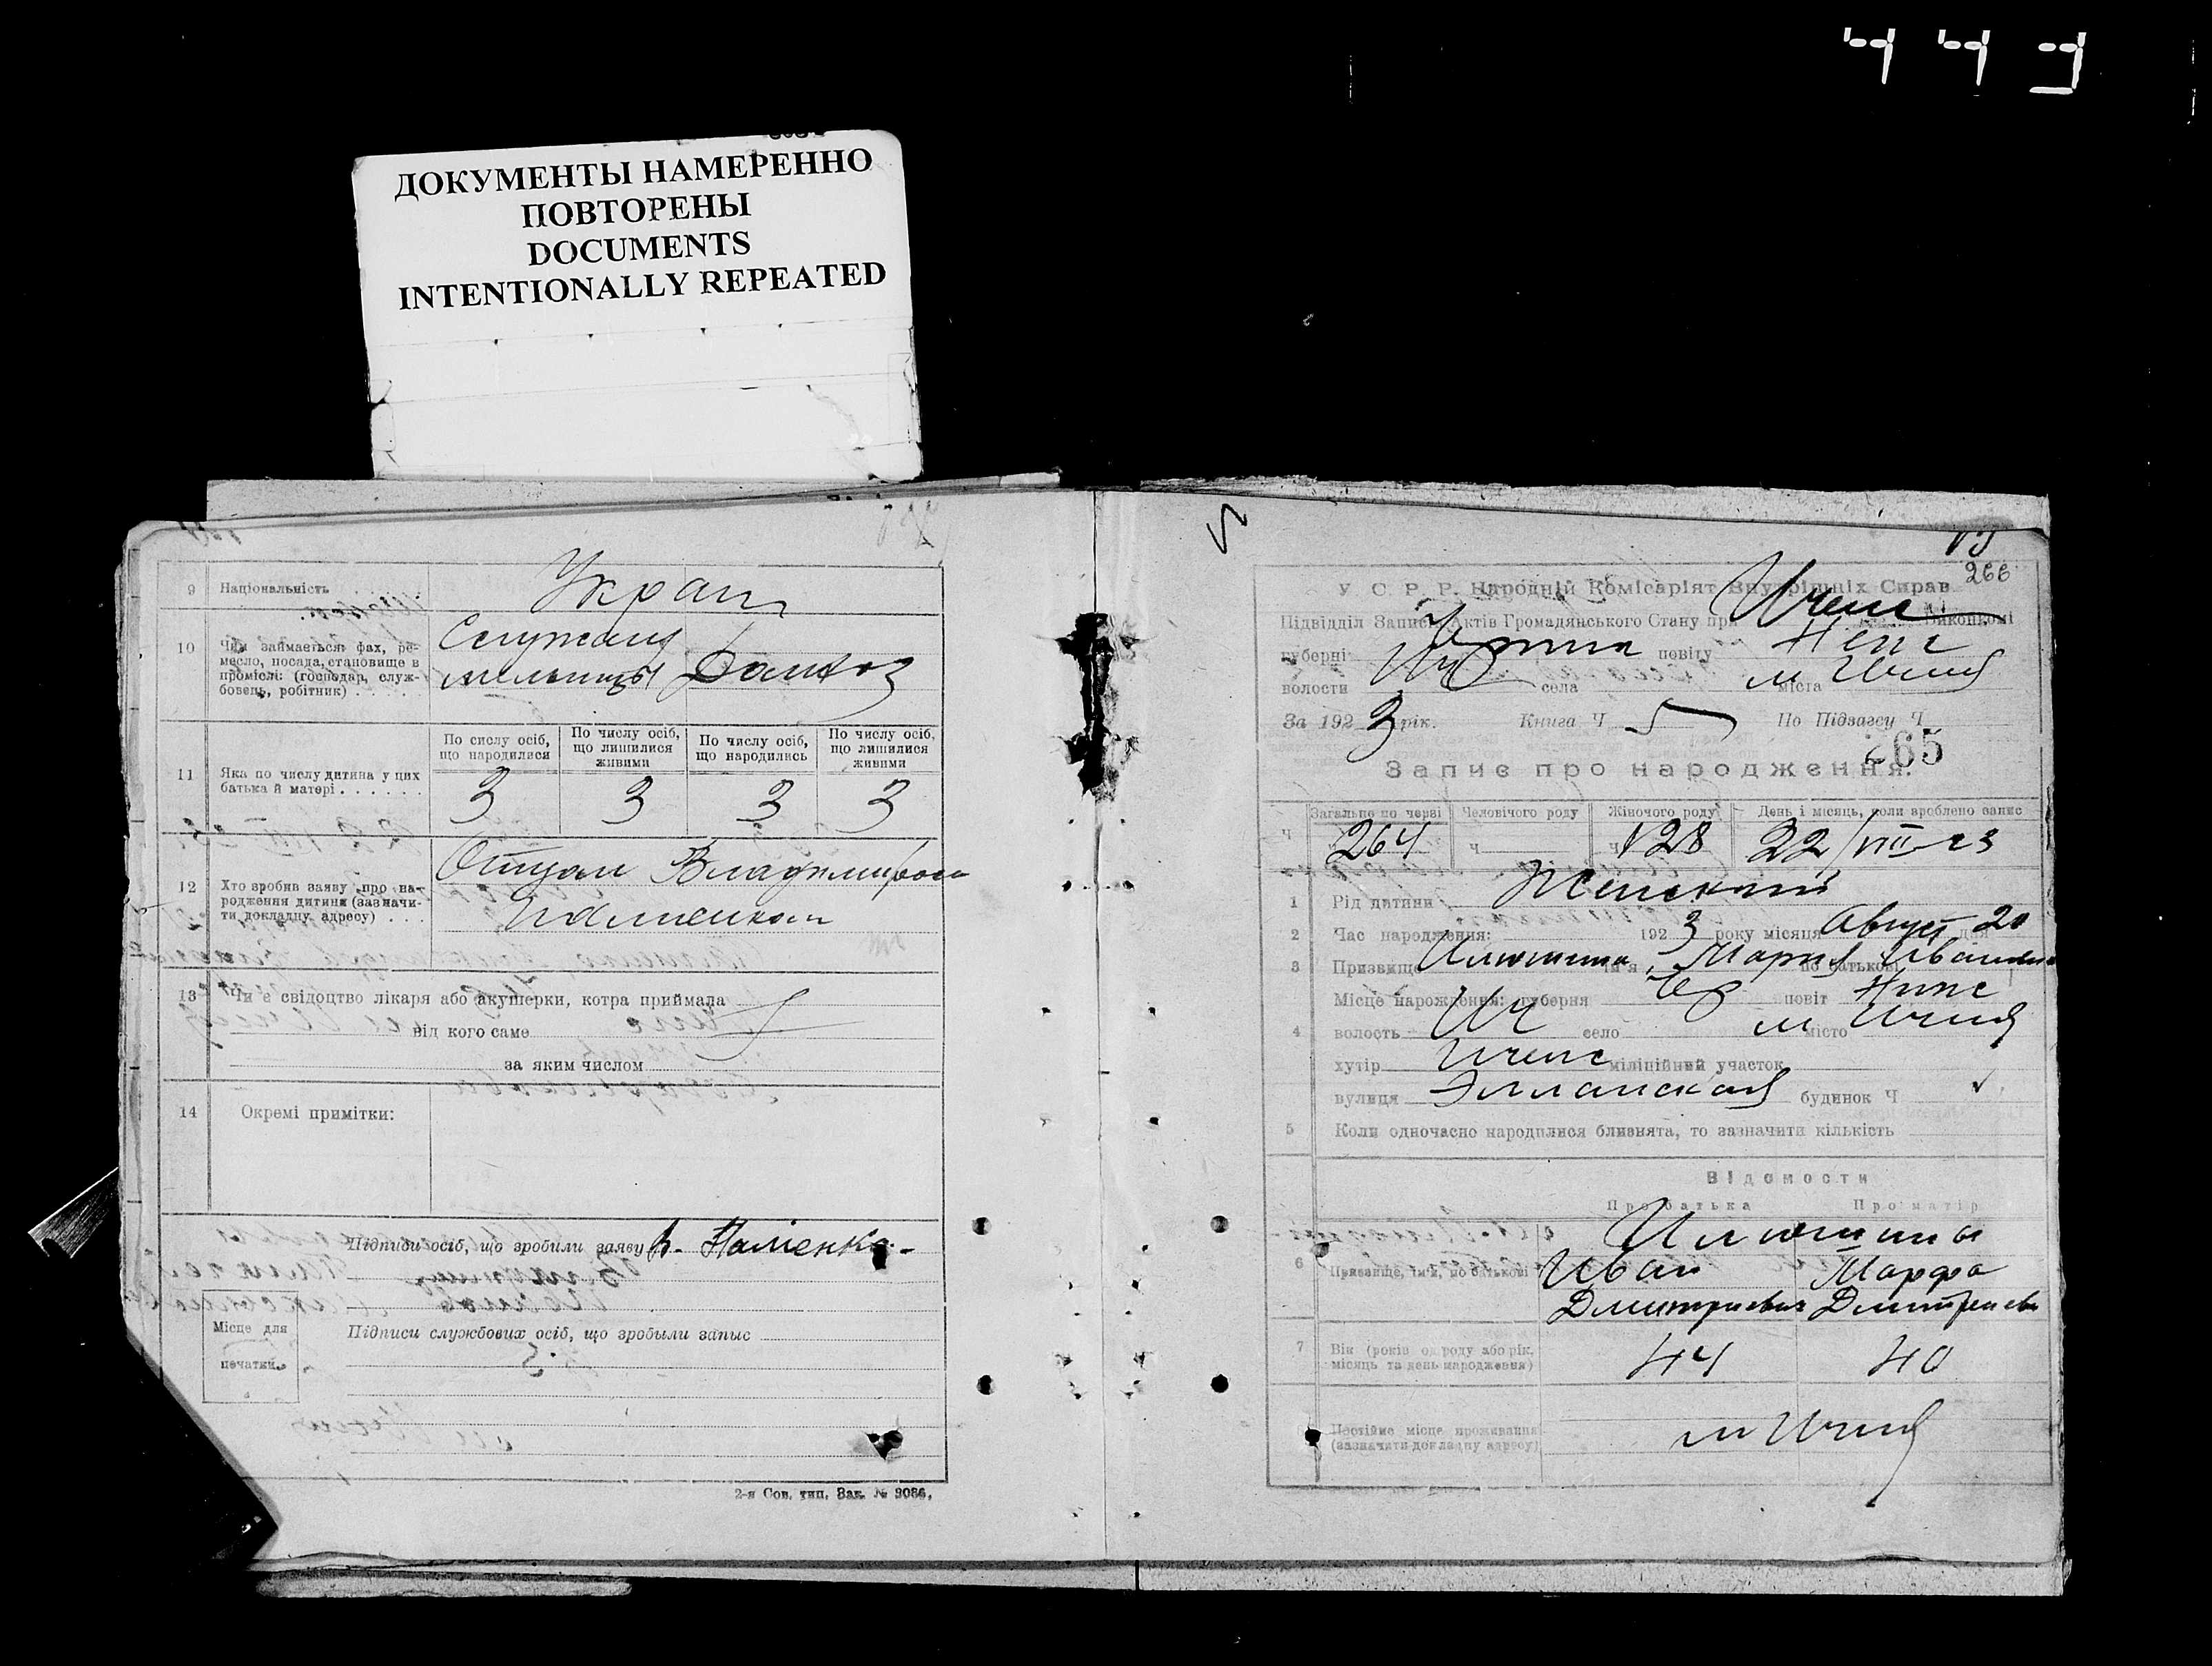 449
ДОКУМЕНТЫ НАМЕРЕННО
ПОВТОРЕНЫ
DOCUMENTS
INTENTIONALLY REPEATED
9 Національність Украин
10 Чим займається: фах, ре-
месло, посада, становище в
проміслі: (господар, служ-
бовець, робітник)
Служащ
мельницы Домхоз
11 Яка по числу дитина у цих
батька й матері
По сислу осіб,
що народилися
По числу осіб,
що лишилися
живими
По числу осіб,
що народились
По числу осіб,
що лишилися
живими
3 3 3 3
12 Хто зробив заяву про на-
родження дитини (зазначи-
ти докладну адресу)
Отцом Владимиром
13 Чи є свідоцтво лікаря або акушерки, котра приймала
від кого саме
за яким числом
14 Окремі примітки:
Підписи осіб, що зробили заяву
Місце для
печатки
Підписи службових осіб, що зробыли запыс
2-я Сов. тип. Зак. № 9086.
266
У. С. Р. Р. Народній Комісаріят Внутрішніх Справ
Підвідділ Записи Актів Громадянського Стану при Ичнс Виконкомі
губерні повіту Неж
волости Ич села м міста Ичня
За 192 3 рік. Книга Ч 5 По Підзагсу Ч
265
Запис про народження.
Загально по черві Человічого роду Жіночого роду День і місяць, коли зроблено запис
Ч 264 ч ч 128 22/VIII-23
1 Рід дитини Женский
2 Час народження: 192 3 року місяця Август 20 дня
3 Призвище Илюшина, ім'я Мария по батькові Ивановна
4 Місце народження: губерня Чер повіт Ниж
волость Ич село м місто Ичня
хутір Ичнс міліційний участок
вулиця будинок Ч
5 Коли одночасно народилися близнята, то зазначити кількість
Відомости
Про батька Про матір
Илюшины
6 Призвище, ім'я, по батькові Иван Марфа
Дмитриевич Дмитриевн
7 Вік (років од роду або рік,
місяць та день народження) 44 40
Постійне місце проживання
(зазначити докладну адресу)
м Ичня